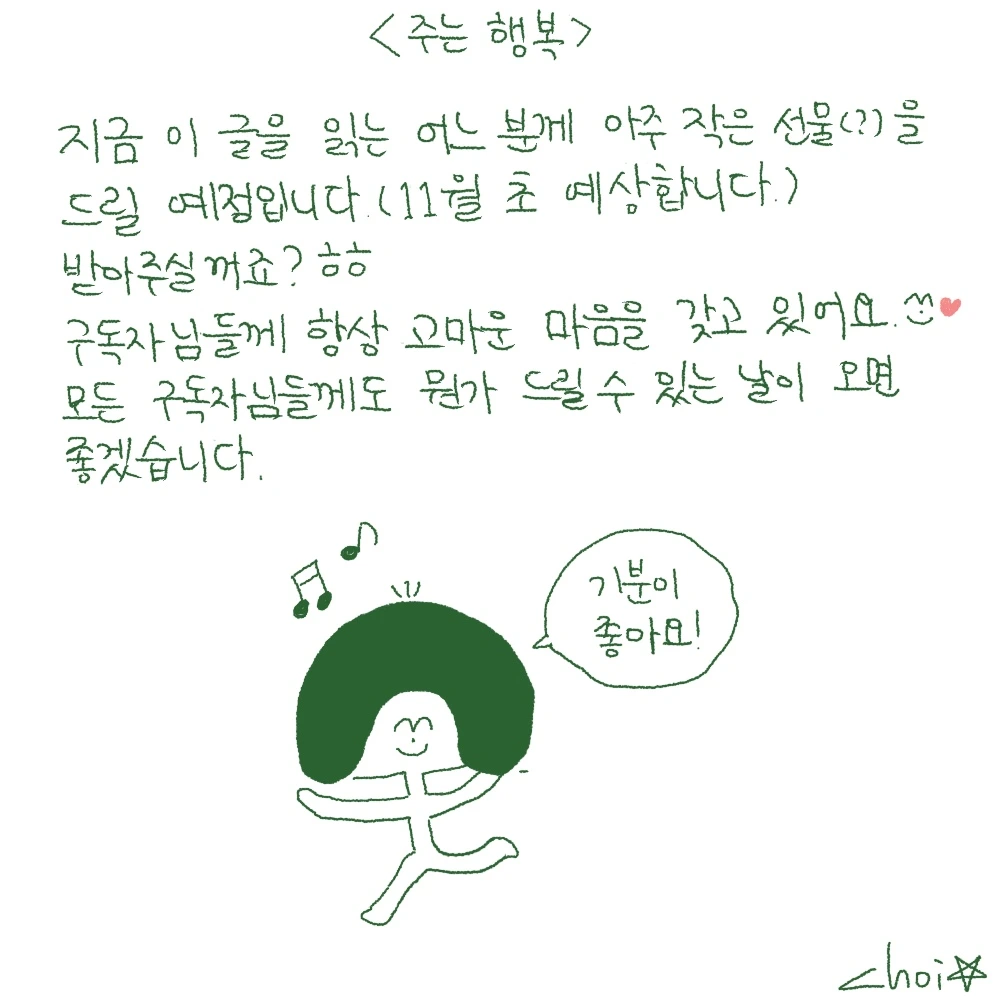 <주는 행복>
지금 이 글을 읽는 어느 분께 아주 작은 선물(?)을
드릴 예정입니다.(11월 초 예상합니다.)
받아주실꺼죠? ㅎㅎ
구독자님들께 항상 고마운 마음을 갖고 있어요.
모든 구독자님들께도 뭔가 드릴 수 있는 날이 오면
좋겠습니다.
기분이
좋아요!
choi